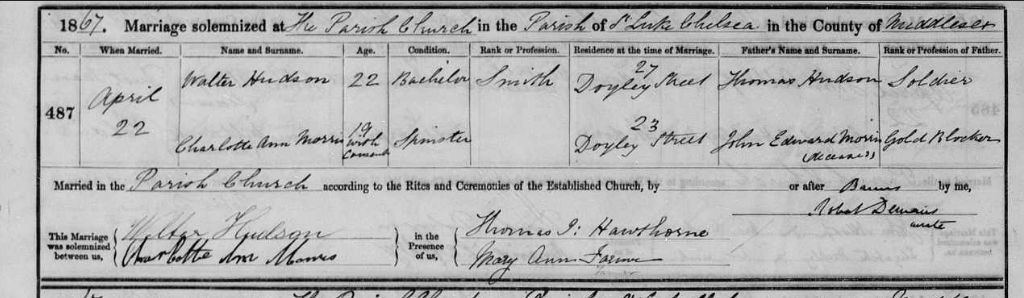 1867. Marriage solemnized at The Parish Church in the Parish of St Luke Chelsea in the County of Middlesex
No. When Married. Name and Surname. Age. Condition. Rank or Profession. Residence at the time of Marriage. Father's Name and Surname. Rank or Profession of Father.
487 April 22
Walter Hudson 22 Bachelor Smith 27 Doyley Street Thomas Hudson Soldier
Charlotte Ann Morris 19 with consent Spinster 23 Doyley Street John Edward Morris (deceased) Gold Blocker
Married in the Parish Church according to the Rites and Ceremonies of the Established Church, by or after Banns by me,
Robert
This Marriage was solemnized between us,
Walter Hudson
Charlotte Ann Morris
in the Presence of us,
Thomas J. Hawthorne
Mary Ann